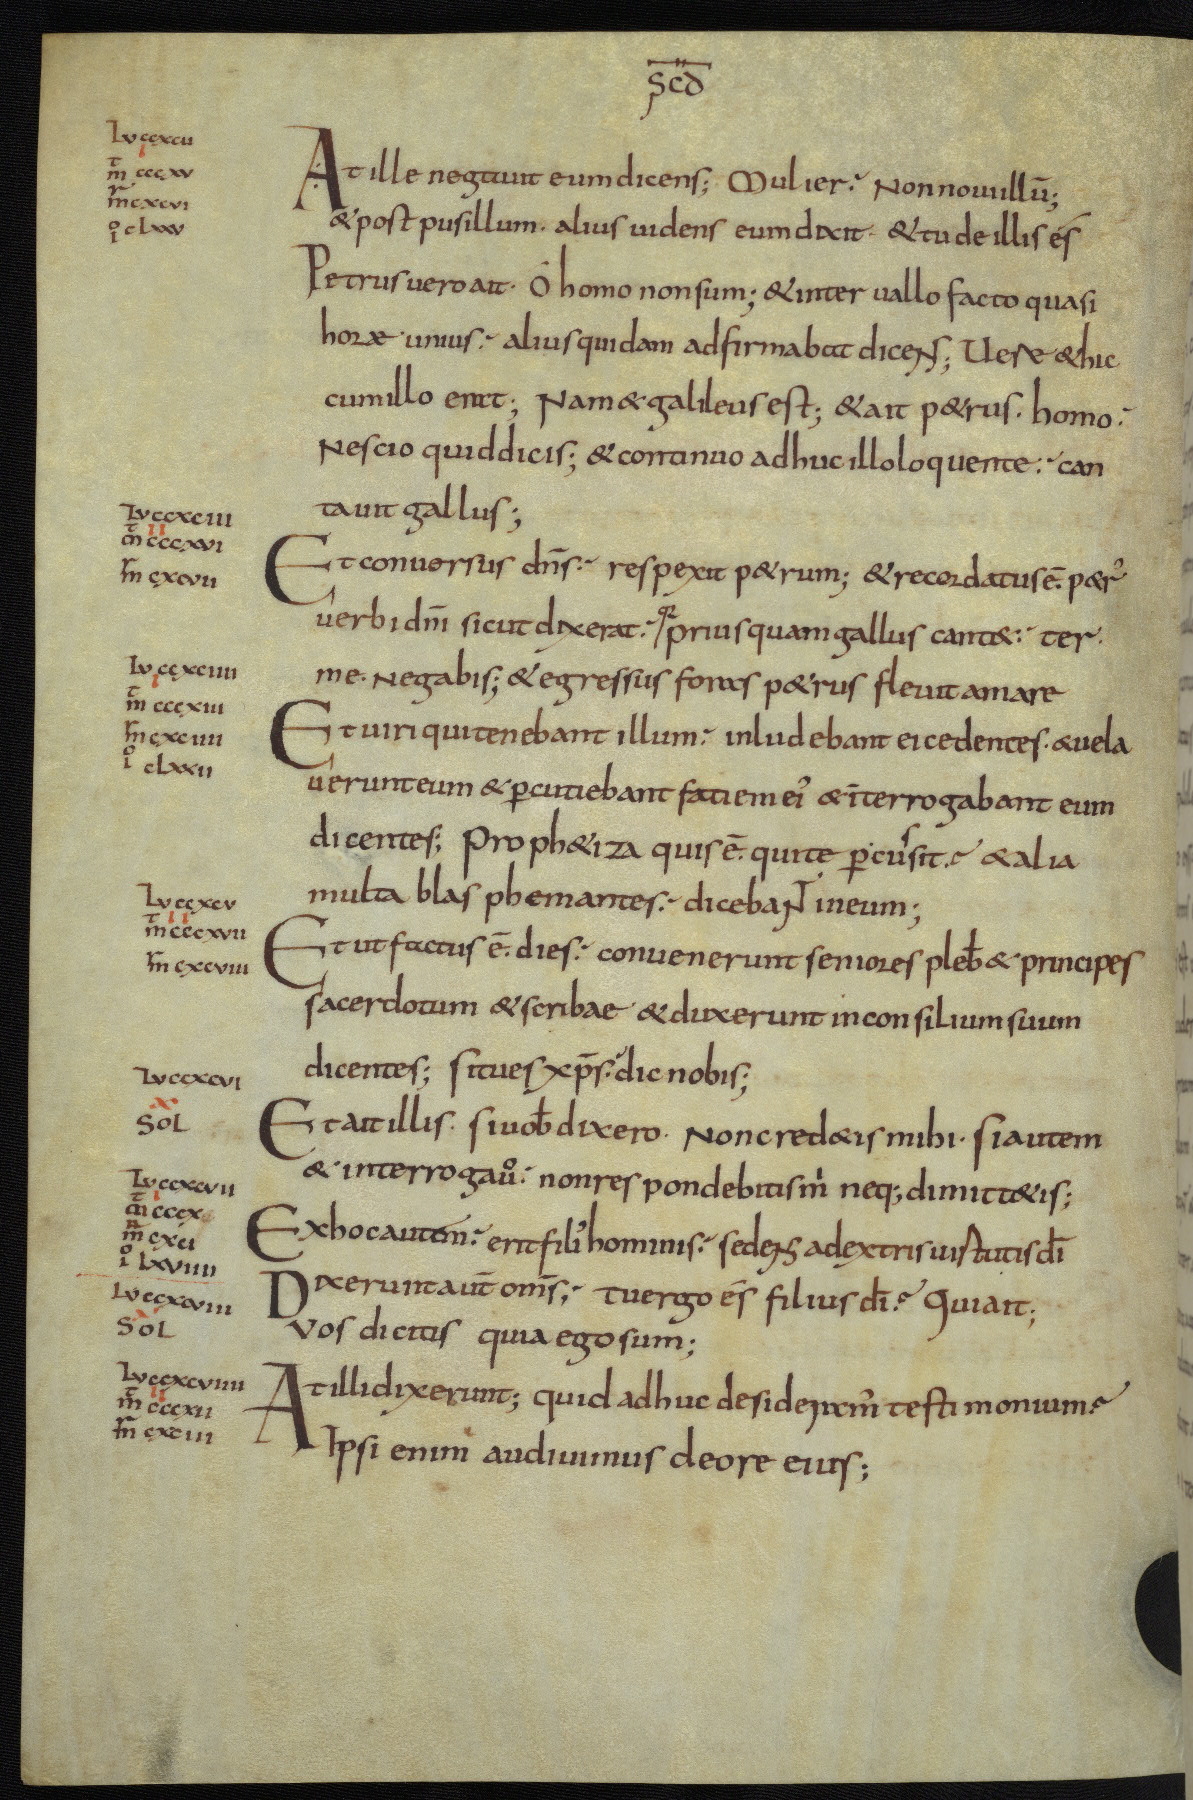 s̄c̄d̄
Lv ccxcii
m̄t cccxv
m̄r cxcvi
io clxxv
At ille negavit eum dicens; Mulier: Non novi illū;
& post pusillum· alius videns eum dixit· & tu de illis és
Petrus vero ait· Ó homo non sum; & inter vallo facto quasi
horæ unius: alius quidam adfirmabat dicens; Vere & hic
cum illo erat; Nam & galileus est; & ait p&rus· homo:
Nescio quid dicis; & continuo adhuc illo loquente: can
tavit gallus;
Lv ccxciii
m̄t cccxvi
m̄r cxcvii
Et conversus dn̄s: respexit p&rum; & recordatus ē· p&r'
verbi dn̄i sicut dixerat: qr priusquam gallus cant&: ter
me· Negabis; & egressus foras p&rus flevit amare
Lv ccxciiii
m̄t cccxiii
m̄r cxciiii
io clxxii
Et viri qui tenebant illum: inludebant ei cedentes· & vela
verunt eum & p̄cutiebant fatiem ei' & īterrogabant eum
dicentes; Proph&iza quis ē· qui te p̄cusit: & alia
multa blasphemantes: dicebant in eum;
Lv ccxcv
m̄t cccxvii
m̄r cxcviii
Et ut factus ē· dies: convenerunt seniores pleb̄ & principes
sacerdotum & scribae & duxerunt in consilium suum
dicentes; si tu es xp̄s: dic nobis;
Lv ccxcvi
x
Sol
Et ait illis· si vob̄ dixero· Non cred&is mihi· si autem
& interrogav̊: non respondebitis m̍ neq; dimitt&is;
Lv ccxcvii
m̄t cccx
m̄r cxci
io lxviiii
Ex hoc autem: erit fili' hominis: sedens a dextris virtutis dī
Lv ccxcviii
x
Sol
Dixerunt aut̄ om̄s; tu ergo és filius dī: Qui ait;
Vos dicitis quia ego sum;
Lv ccxcviiii
m̄t cccxii
m̄r cxciii
At illi dixerunt; quid adhuc desideram' testimonium:
Ipsi enim audivimus de ore eius;